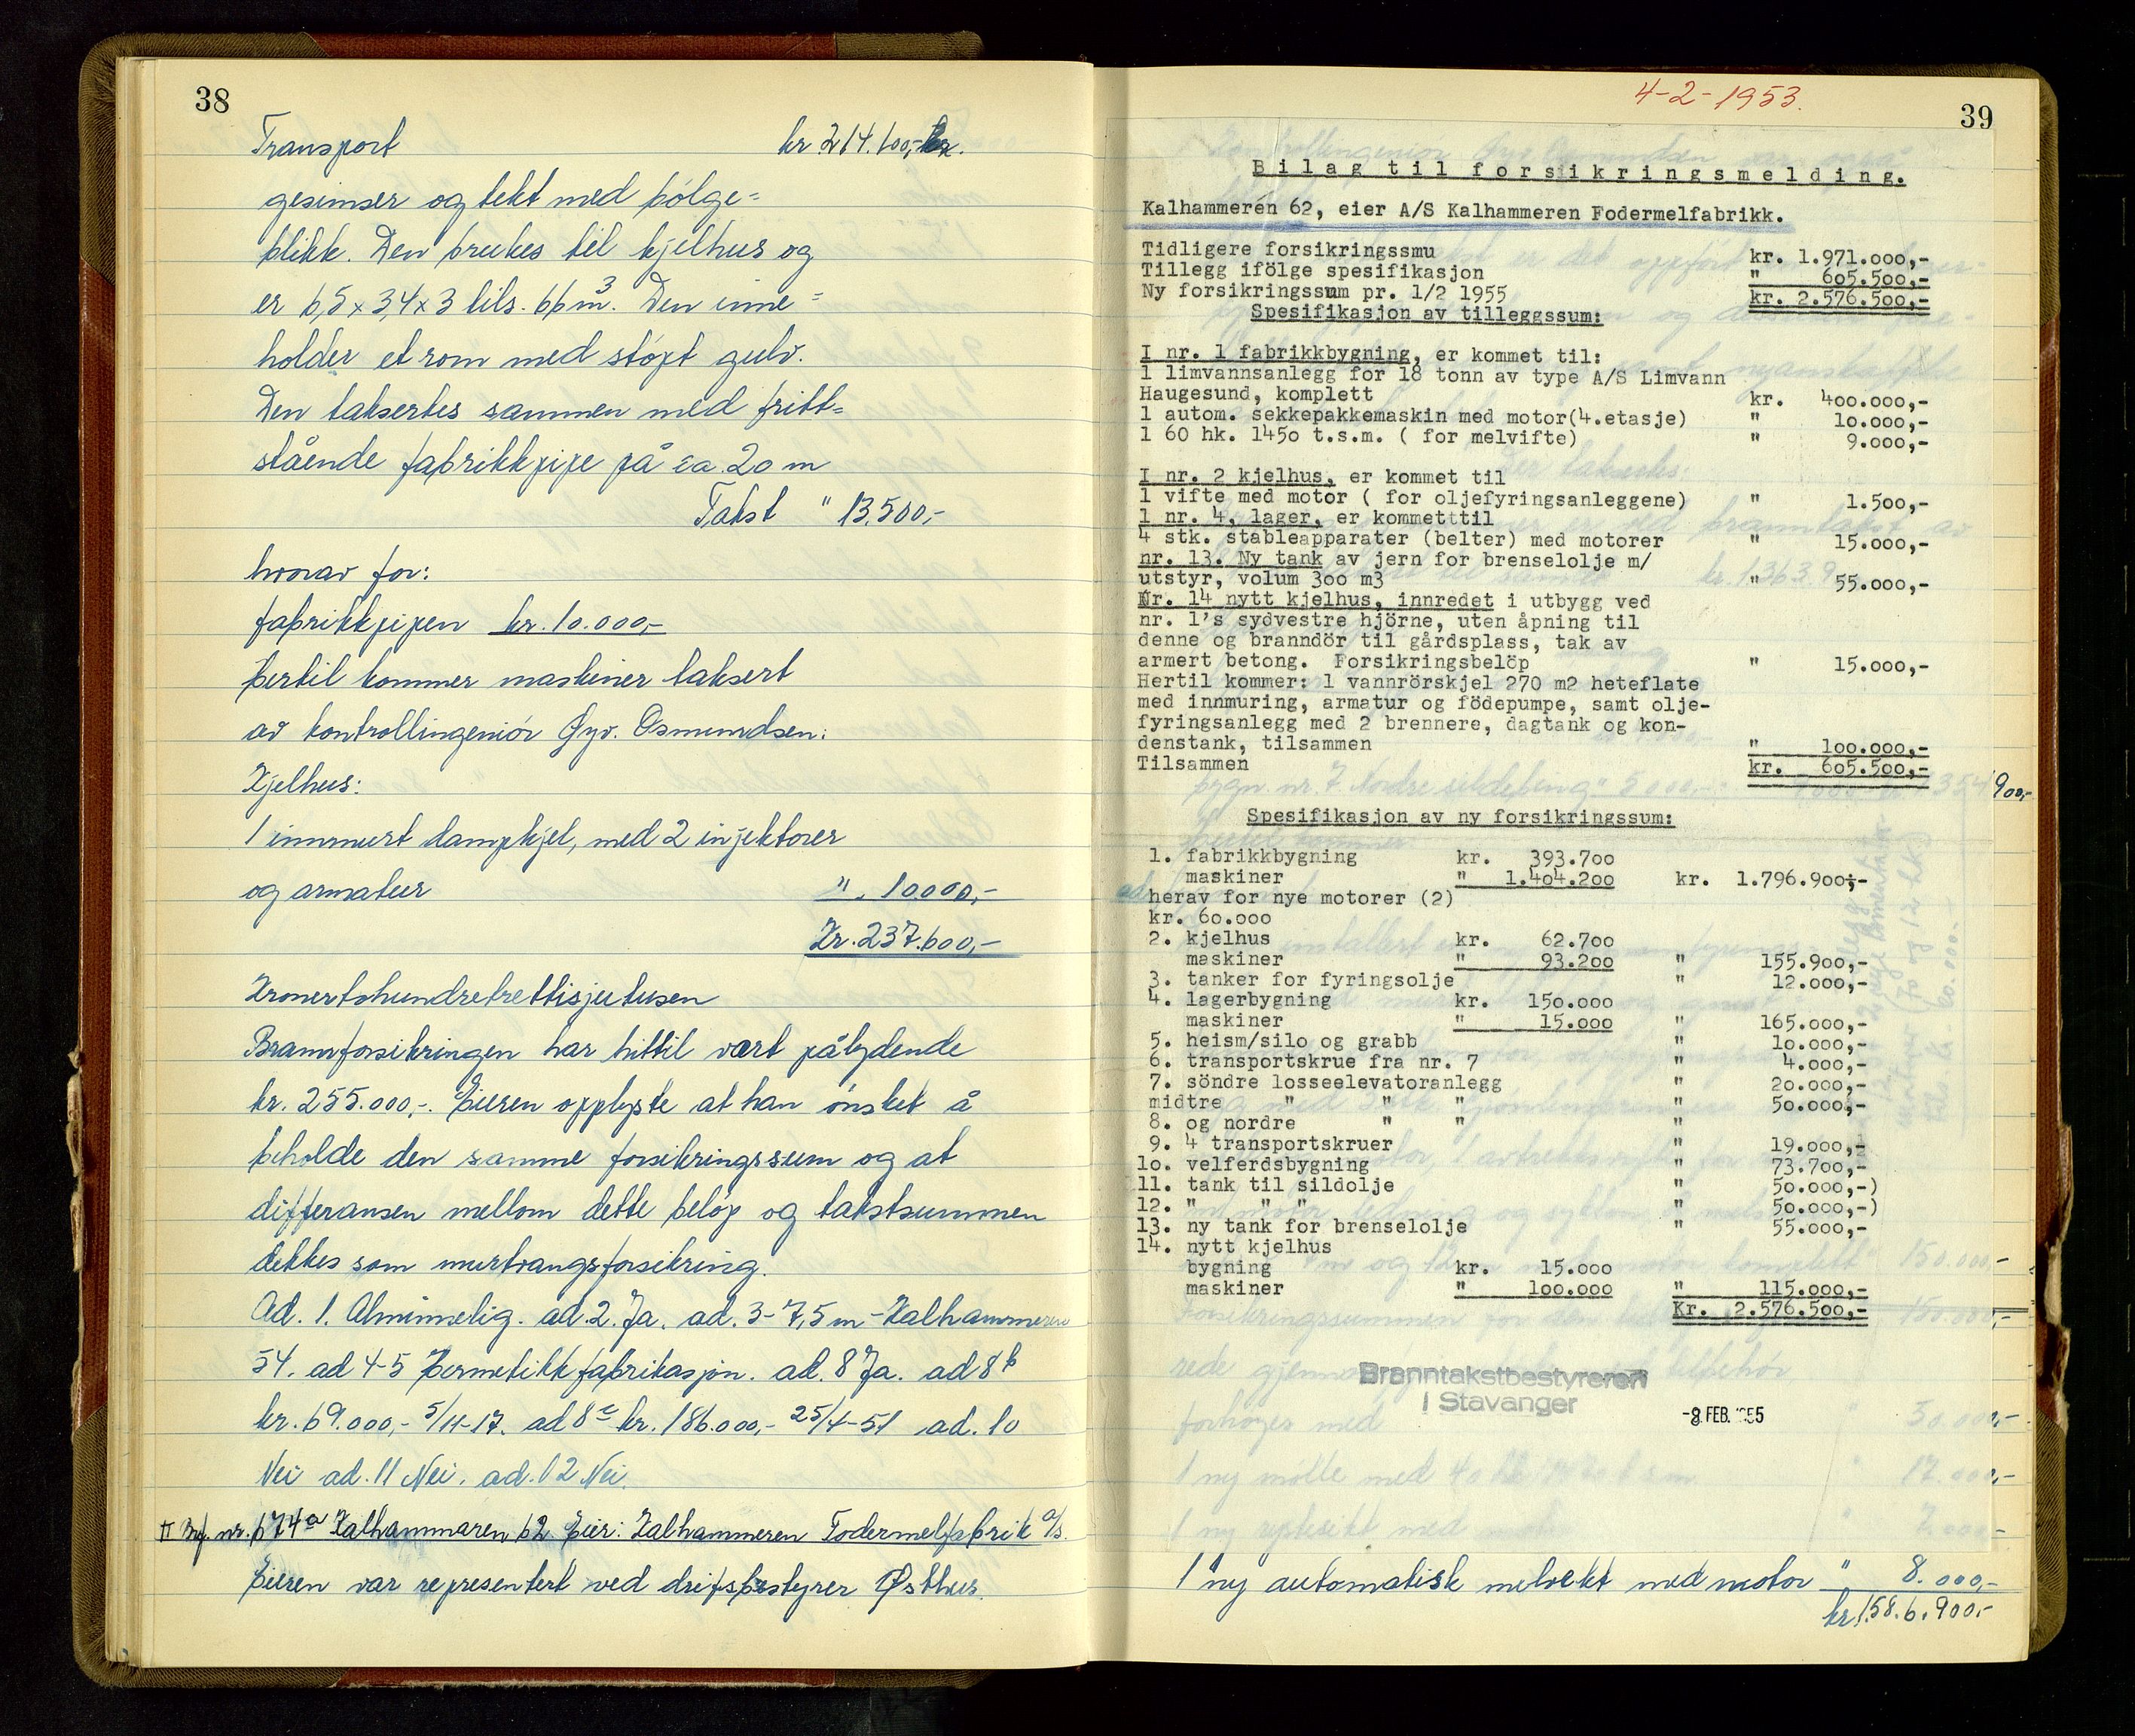 38
Transport kr 214.100,-
gesimser og tekt med bölge=
blikk. Den brukes til kjelhus og
er 6,5 x 3,4 x 3 tils. 66 m³. Den inne=
holder et rom med stöpt gulv.
Den takseres sammen med fritt=
stående fabrikkpipe på ca. 20 m
Takst " 13.500,-
hvorav for:
fabrikkpipen kr. 10.000,-
Hertil kommer maskiner taksert
av kontrollingeniör Øyv. Osmundsen:
Kjelhus:
1 innmurt dampkjel, med 2 injektorer
og armatur " 10.000,-
Kr. 237.600,-
Kronertohundretrettisjutusen
Brannforsikringen har hittil vært pålydende
kr. 255.000,-. Eieren opplyste at han önsket å
beholde den samme forsikringssum og at
differansen mellom dette belöp og takstsummen
dekkes som murtvangsforsikring.
Ad. 1. Alminnelig. ad. 2. Ja. ad. 3 - 7,5 m - Kalhammeren
54. ad 4-5 Hermetikkfabrikasjon. ad. 8 Ja. ad 8 b
kr. 69.000,- 5/11-17. ad 8 c kr. 186.000,- 25/4-51 ad. 10
Nei ad. 11 Nei. ad. 12 Nei.
II Brf. nr. 674a Kalhammaren 62. Eier: Kalhammeren Fodermelfabrik a/s.
Eieren var representert ved driftsbestyrer Østhus.
4-2-1953.
39
Bilag til forsikringsmelding.
Kalhammeren 62, eier A/S Kalhammeren Fodermelfabrikk.
Tidligere forsikringssmu kr. 1.971.000,-
Tillegg ifölge spesifikasjon " 605.500,-
Ny forsikringssum pr. 1/2 1955 kr. 2.576.500,-
Spesifikasjon av tilleggssum:
I nr. 1 fabrikkbygning, er kommet til:
1 limvannsanlegg for 18 tonn av type A/S Limvann
Haugesund, komplett kr. 400.000,-
1 autom. sekkepakkemaskin med motor(4.etasje) " 10.000,-
1 60 hk. 1450 t.s.m. ( for melvifte) " 9.000,-
I nr. 2 kjelhus, er kommet til
1 vifte med motor ( for oljefyringsanleggene) " 1.500,-
1 nr. 4, lager, er kommetttil
4 stk. stableapparater (belter) med motorer " 15.000,-
nr. 13. Ny tank av jern for brenselolje m/
utstyr, volum 300 m3 " 55.000,-
Nr. 14 nytt kjelhus, innredet i utbygg ved
nr. 1's sydvestre hjörne, uten åpning til
denne og branndör til gårdsplass, tak av
armert betong. Forsikringsbelöp " 15.000,-
Hertil kommer: 1 vannrörskjel 270 m2 heteflate
med innmuring, armatur og födepumpe, samt olje-
fyringsanlegg med 2 brennere, dagtank og kon-
denstank, tilsammen " 100.000,-
Tilsammen kr. 605.500,-
900,-
Spesifikasjon av ny forsikringssum:
1. fabrikkbygning kr. 393.700
maskiner " 1.404.200 kr. 1.796.900,-
herav for nye motorer (2)
kr. 60.000
2. kjelhus kr. 62.700
maskiner " 93.200 " 155.900,-
3. tanker for fyringsolje " 12.000,-
4. lagerbygning kr. 150.000
maskiner " 15.000 " 165.000,-
5. heism/silo og grabb " 10.000,-
6. transportskrue fra nr. 7 " 4.000,-
7. söndre losseelevatoranlegg " 20.000,-
midtre " " " " 50.000,-
8. og nordre " " "
9. 4 transportskruer " 19.000,-
10. velferdsbygning " 73.700,-
11. tank til sildolje " 50.000,-)
12. " " " " 50.000,-)
13. ny tank for brenselolje " 55.000,-
14. nytt kjelhus
bygning kr. 15.000
maskiner " 100.000 " 115.000,-
Kr. 2.576.500,-
Branntakstbestyreren
i Stavanger
-8. FEB. 1955
1 ny automatisk melvekt med motor " 8.000,-
kr. 1.586.900,-